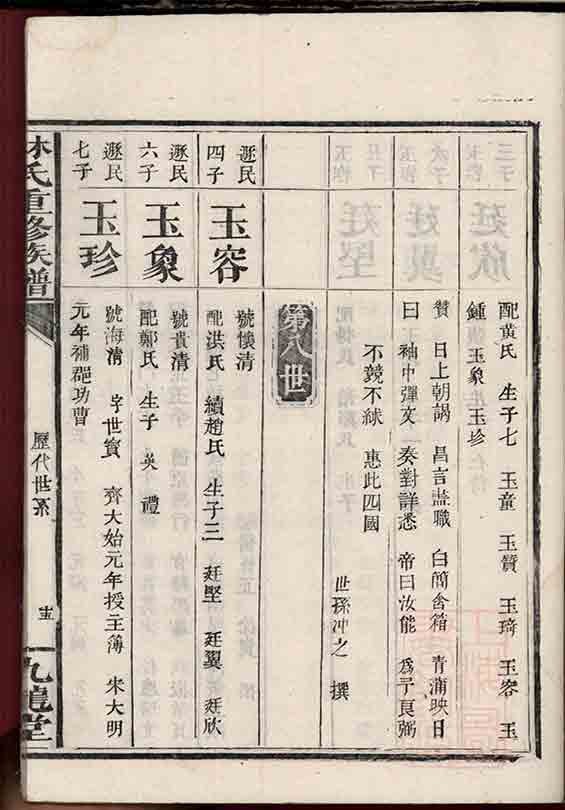 配黃氏 生子七 玉童 玉贊 玉琦 玉容 玉
鍾 玉象 玉珍
贊 曰 上朝謁 昌言盐職 白簡含箱 青蒲映日
曰 袖中彈文 奏對詳悉 帝曰汝能 為予良弼
不競不絿 惠此四國
世孫冲之 撰
第八世
遯民
四子
玉容
號懷清
配洪氏 續趙氏 生子三 廷堅 廷翼 廷欣
遯民
六子
玉象
號貴清
配鄭氏 生子 英 禮
遯民
七子
玉珍
號海清 字世寳 齊大始元年授主簿 宋大明
元年補郡功曹
林氏重修族譜
歷代世系
九龍堂